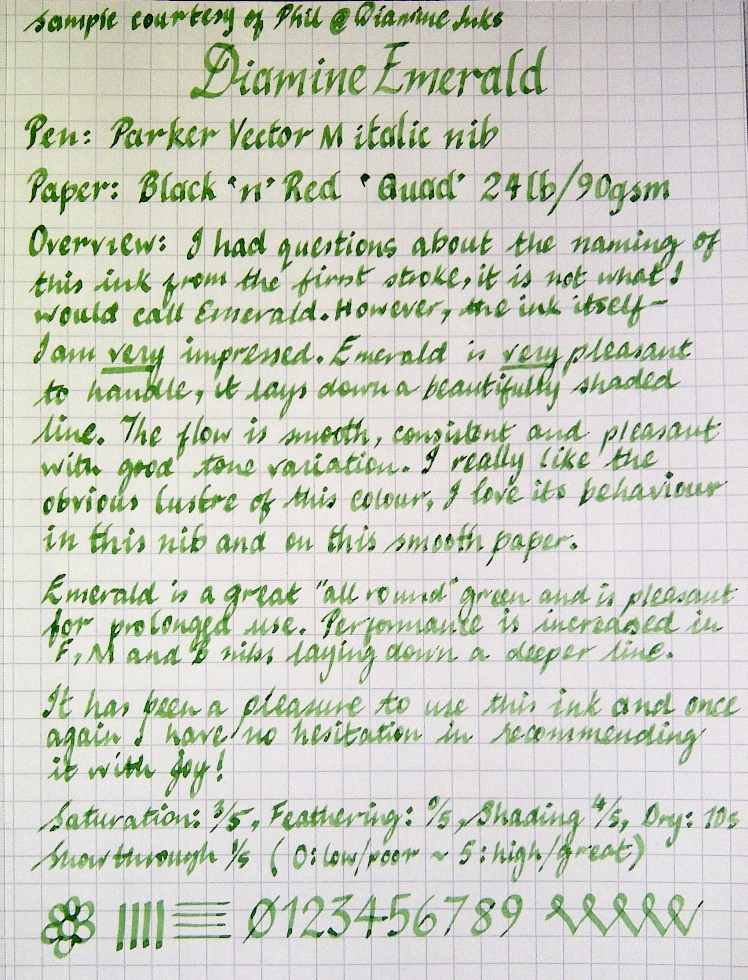 Sample courtesy of Phil @ Diamine Inks
Diamine Emerald
Pen: Parker Vector M italic nib
Paper: Black 'n' Red 'Quad' 24lb/90gsm
Overview: I had questions about the naming of
this ink from the first stroke, it is not what I
would call Emerald. However, the ink itself –
I am very impressed. Emerald is very pleasant
to handle, it lays down a beautifully shaded
line. The flow is smooth, consistent and pleasant
with good tone variation. I really like the
obvious lustre of this colour, I love its behaviour
in this nib and on this smooth paper.
Emerald is a great "all round" green and is pleasant
for prolonged use. Performance is increased in
F, M and B nibs laying down a deeper line.
It has been a pleasure to use this ink and once
again I have no hesitation in recommending
it with joy!
Saturation: 3/5, Feathering: 0/5, Shading 4/5, Dry: 10s
Showthrough 1/5 (0:low/poor ~ 5:high/great)
0123456789